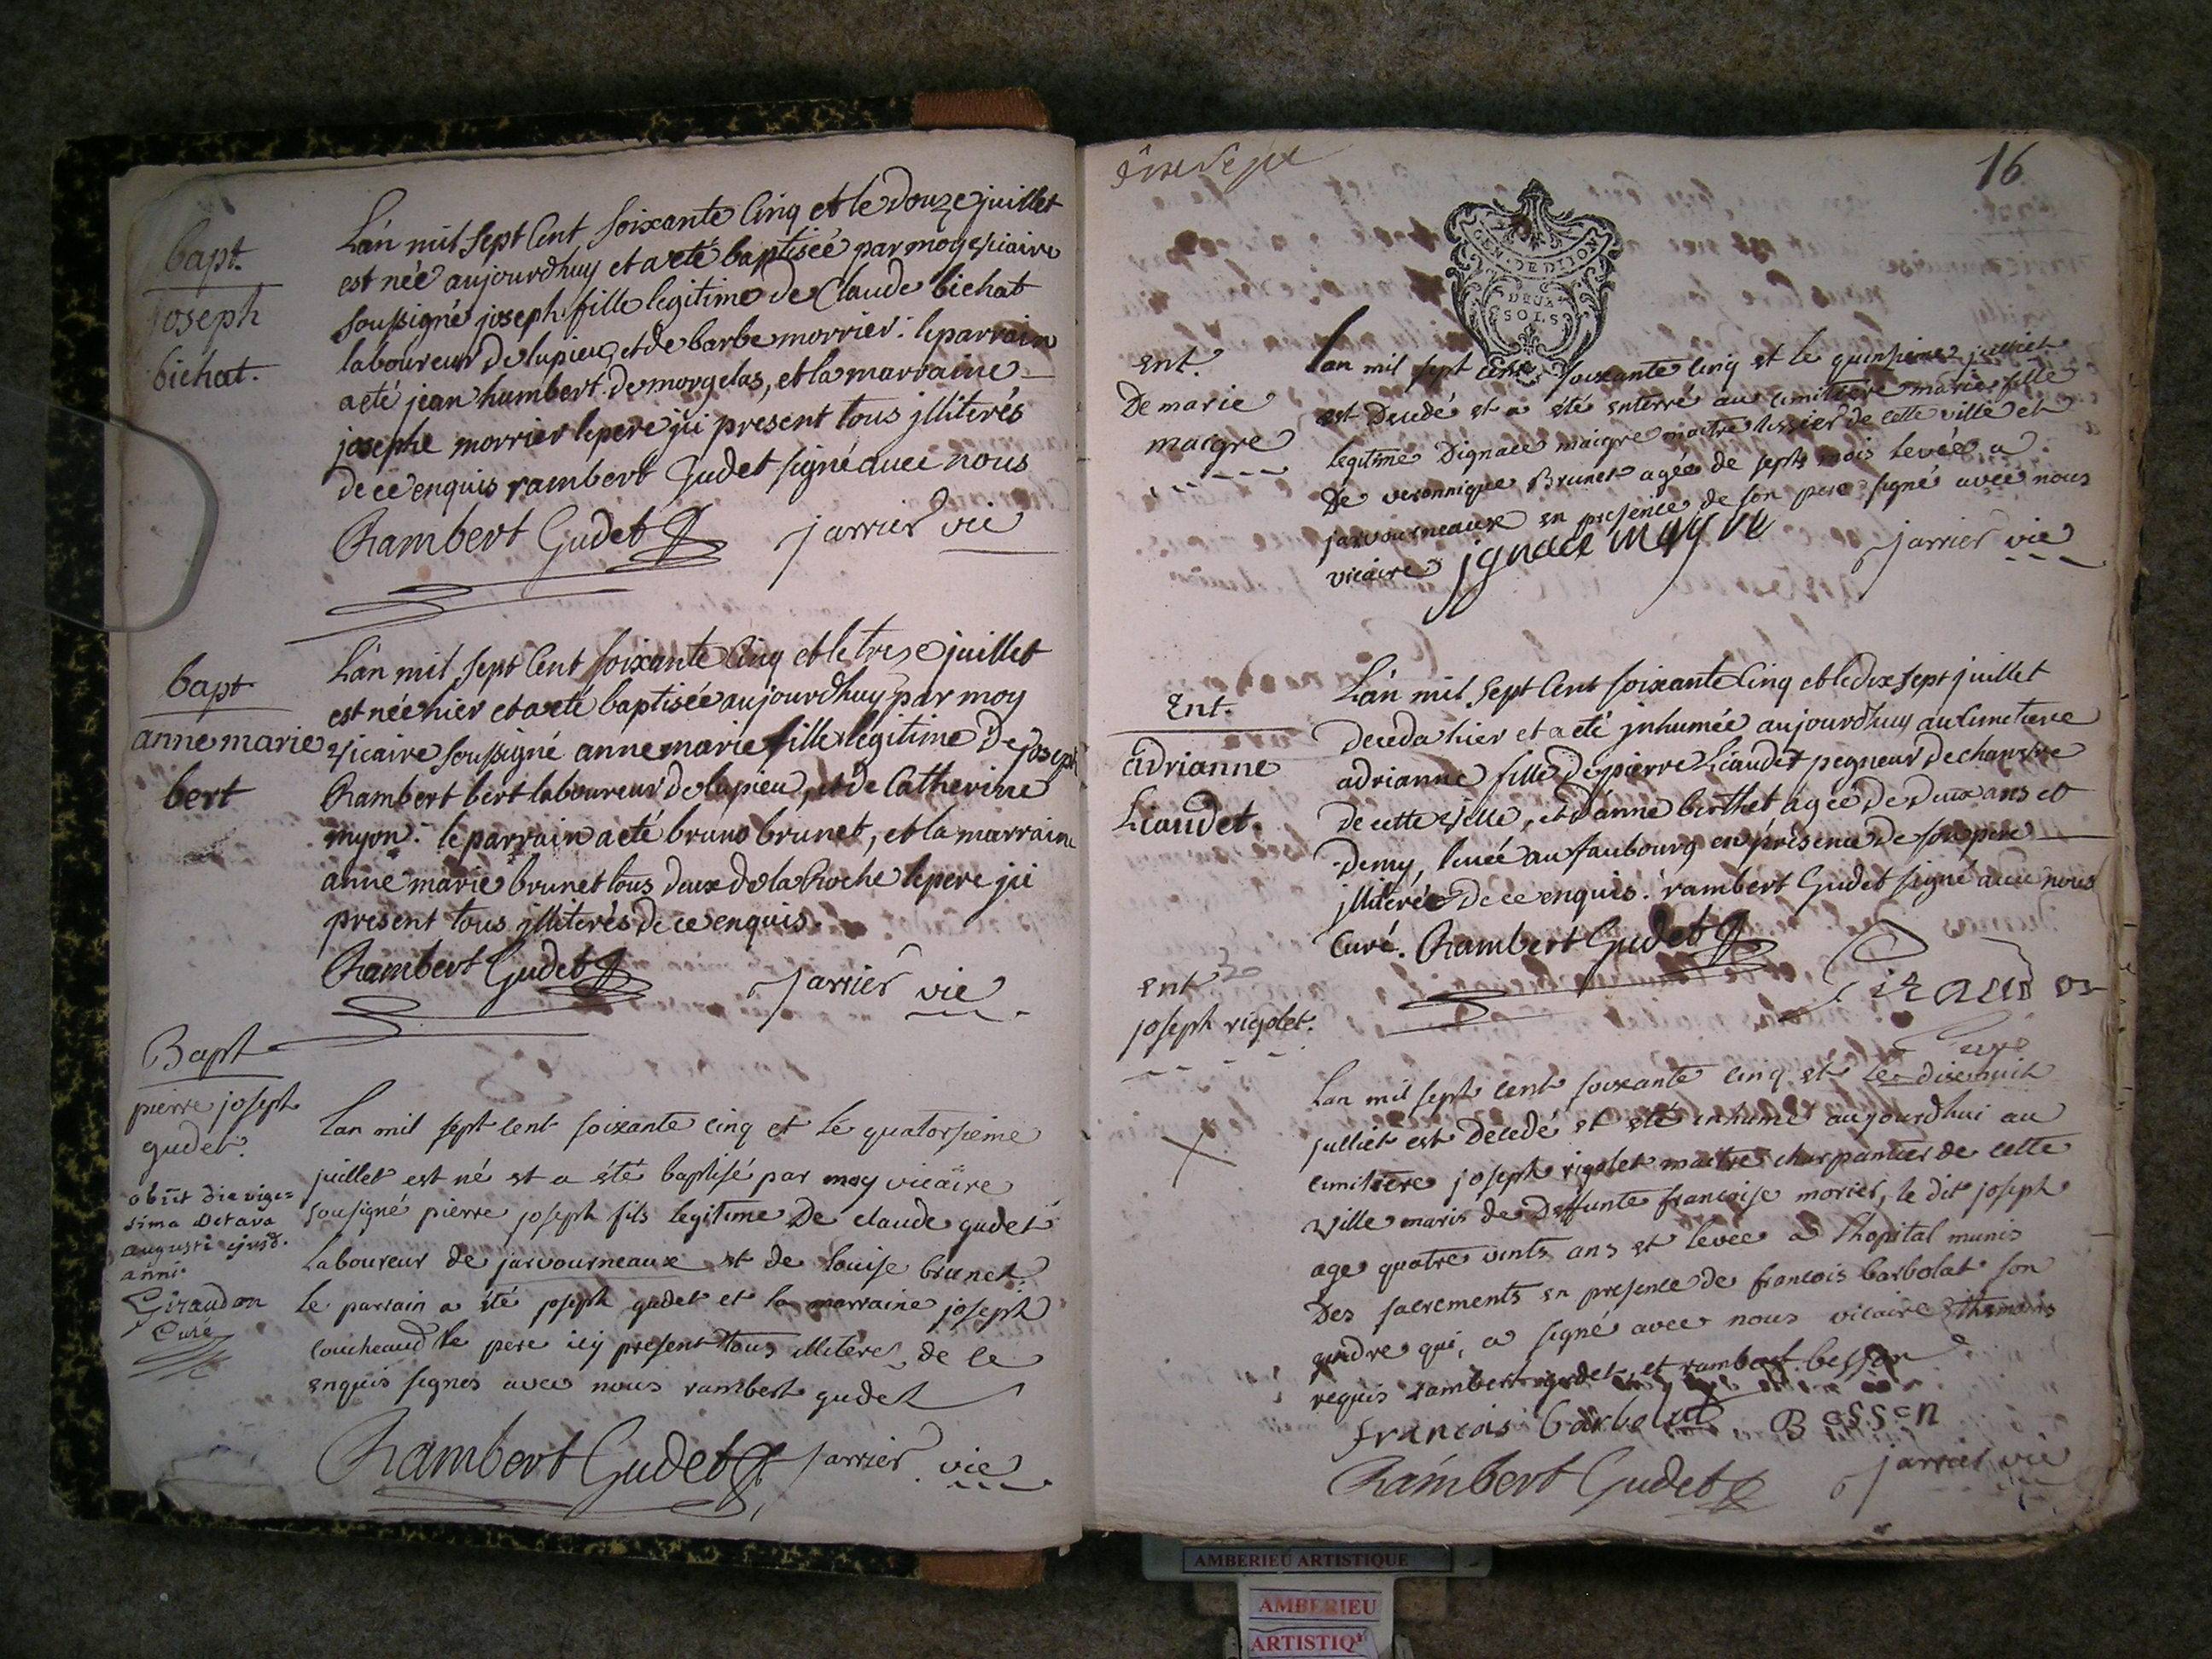 bapt.
joseph
bichat.
L'an mil sept Cent soixante Cinq et le Douze juillet
est née aujourdhuy et a eté baptisée par moy vicaire
soussigné joseph fille legitime de Claude bichat
laboureur de lupieu, et de barbe morrier. le parrain
a eté jean humbert de morgelas, et la marraine
josephe morrier le pere jci present tous jlliterés
de ce enquis rambert Gudet signé avec nous
Rambert Gudet jarrier vic
bapt
anne marie
bert
L'an mil sept Cent soixante Cinq et le treze juillet
est née hier et a eté baptisée aujourdhuy par moy
vicaire soussigné anne marie fille legitime De joseph
Rambert bert laboureur de lupieu, et de Catherine
myon. le parrain a eté bruno brunet, et la marraine
anne marie brunet tous deux de la Roche le pere jci
present tous jlliterés de ce enquis.
Rambert Gudet jarrier vic
Bapt
pierre joseph
gudet.
obiit die vige=
sima octava
augusti ejusd.
anni.
Giraudon
Curé
Lan mil sept cent soixante cinq et le quatorsieme
juillet est né et a été baptisé par moy vicaire
sousigné pierre joseph fils legitime De claude gudet
Laboureur de jarvourneaux et de louise brunet.
le parrain a été joseph gudet et la marraine joseph
coucheaud le pere icy present tous illiteres de ce
enquis signes avec nous rambert gudet
Rambert Gudet jarrier vic
16
GEN. DE DIJON
DEUX
SOLS
Ent.
De marie
maigre
Lan mil sept cent soixante cinq et le quinsieme julliet
est decedé et a été enterré au cimitière marie fille
legitime Dignace maigre maitre tissier de cette ville et
De veronnique Brunet agée de sept mois levée a
jarvourneaux en presence de son pere signé avec nous
vicaire jgnace maygre jarrier vic
Ent.
adrianne
Liaudet.
L'an mil sept Cent soixante Cinq et le dix sept juillet
deceda hier et a eté jnhumée aujourdhuy au Cimetiere
adrianne fille de pierre Liaudet pegneur de chanvre
de cette ville, et d'anne berthet agée de deux ans et
demy, levée au faubourg en présence de son pere
jlliteré de ce enquis. rambert Gudet signé avec nous
Curé. Rambert Gudet Giraudon
Curé
ent
joseph rigolet.
Lan mil sept cent soixante cinq et le dixenuit
julliet est decedé et eté inhumé aujourdhui au
cimitiere joseph rigolet maitre charpantier de cette
ville maris de deffunte francoise morier, le dit joseph
age quatre vints ans et levée a lhopital munis
Des sacrements en presence de francois barbolat son
gendre qui, a signé avec nous vicaire et temoins
requis rambert gudet, et rambert besson
francois barbolat Besson
Rambert Gudet jarrier vic
AMBERIEU ARTISTIQUE
AMBERIEU
ARTISTIQ